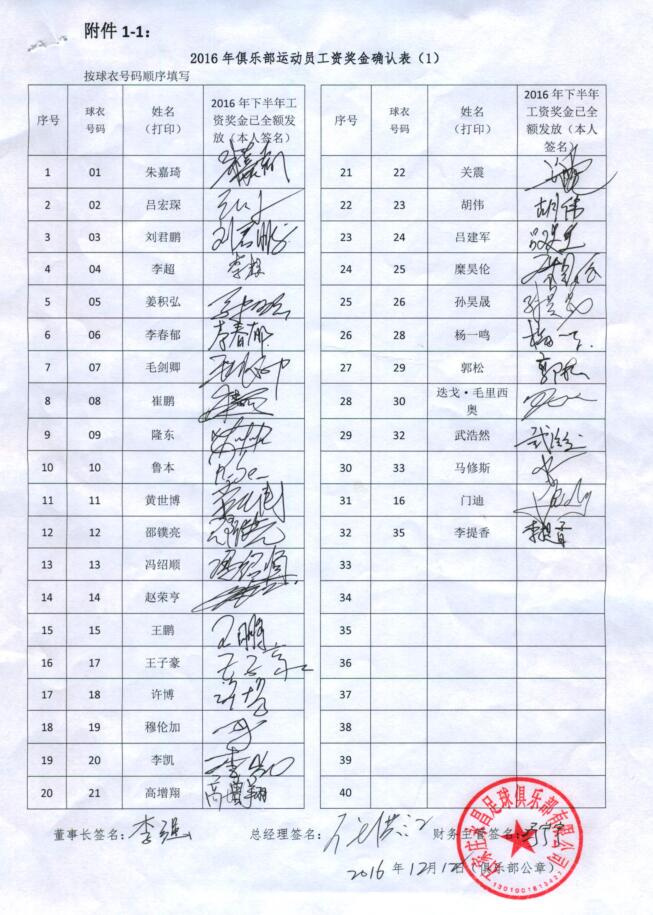 附件 1-1：
2016 年俱乐部运动员工资奖金确认表（1）
按球衣号码顺序填写
序号 球衣号码 姓名（打印） 2016 年下半年工资奖金已全额发放（本人签名） 序号 球衣号码 姓名（打印） 2016 年下半年工资奖金已全额发放（本人签名）
1 01 朱嘉琦 21 22 关震
2 02 吕宏琛 22 23 胡伟 胡伟
3 03 刘君鹏 刘君鹏 23 24 吕建军
4 04 李超 李超 24 25 糜昊伦
5 05 姜积弘 25 26 孙昊晟
6 06 李春郁 李春郁 26 28 杨一鸣
7 07 毛剑卿 27 29 郭松 郭松
8 08 崔鹏 28 30 迭戈·毛里西奥
9 09 隆东 29 32 武浩然 武浩然
10 10 鲁本 30 33 马修斯
11 11 黄世博 31 16 门迪
12 12 邵镤亮 32 35 李提香 李提香
13 13 冯绍顺 冯绍顺 33
14 14 赵荣亨 34
15 15 王鹏 王鹏 35
16 17 王子豪 36
17 18 许博 37
18 19 穆伦加 38
19 20 李凯 李凯 39
20 21 高增翔 高增翔 40
董事长签名：李强 总经理签名： 财务主管签名：
2016 年 12月 12日（俱乐部公章）
昌足球俱乐部有限公司